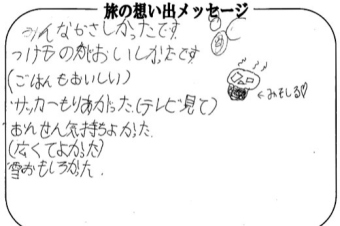 旅の想い出メッセージ
みんなやさしかったです
つけものがおいしかったです
(ごはんもおいしい)
サッカーもりあがった(テレビ見て)
←みそしる♡
おんせん気持ちよかった
(広くてよかった)
雪おもしろかた.